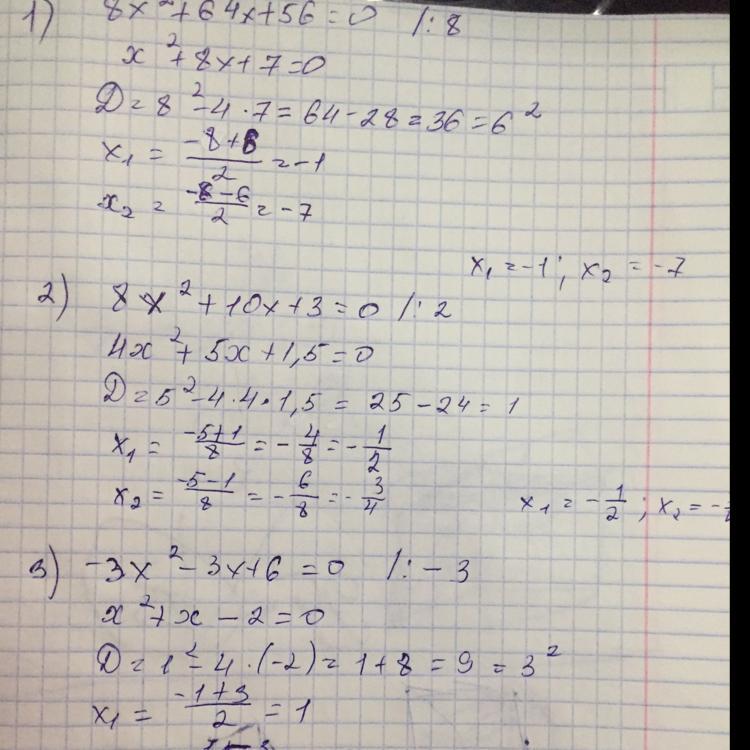 1) 8x² + 64x + 56 = 0 /: 8
x² + 8x + 7 = 0
D = 8² - 4 · 7 = 64 - 28 = 36 = 6²
x₁ = (-8+6)/2 = -1
x₂ = (-8-6)/2 = -7
x₁ = -1; x₂ = -7
2) 8x² + 10x + 3 = 0 /: 2
4x² + 5x + 1,5 = 0
D = 5² - 4 · 4 · 1,5 = 25 - 24 = 1
x₁ = (-5+1)/8 = -4/8 = -1/2
x₂ = (-5-1)/8 = -6/8 = -3/4
x₁ = -1/2; x₂ = -
3) -3x² - 3x + 6 = 0 /: -3
x² + x - 2 = 0
D = 1² - 4 · (-2) = 1 + 8 = 9 = 3²
x₁ = (-1+3)/2 = 1